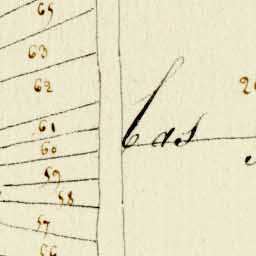 65
63
62
61
60
59
58
57
56
bas